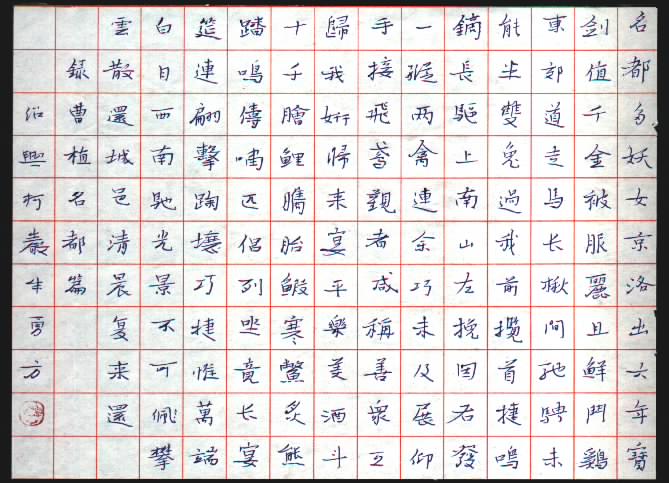 名都多妖女京洛出少年寶
劍值千金被服麗且鮮鬥雞
東郊道走馬長楸間馳騁未
能半雙兔過我前攬首捷鳴
鏑長驅上南山左挽因右發
一縱兩禽連余巧未及展仰
手接飛鳶觀者咸稱善眾工
歸我妍歸來宴平樂美酒斗
十千膾鯉臇胎鰕寒鱉炙熊
踏鳴儔嘯匹侶列坐竟長宴
筵連翩擊踘壤巧捷惟萬端
白日西南馳光景不可佩攀
雲散還城邑清晨复來還
錄曹植名都篇
紹興柯巖勇方